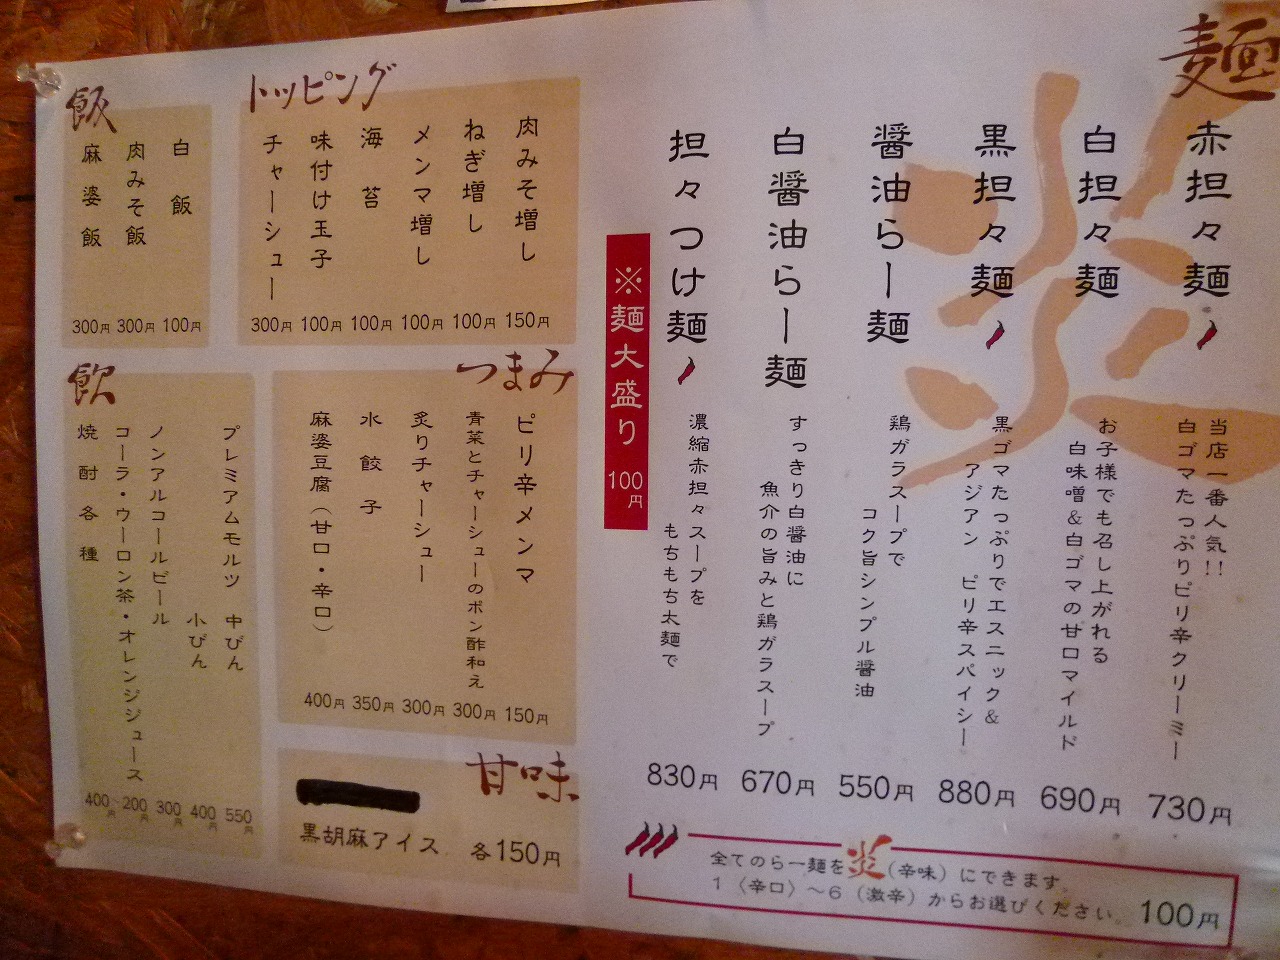 麺
赤担々麺
当店一番人気!!
白ゴマたっぷりピリ辛クリーミー
730円
白担々麺
お子様でも召し上がれる
白味噌&白ゴマの甘口マイルド
690円
黒担々麺
黒ゴマたっぷりでエスニック&
アジアン ピリ辛スパイシー
880円
醤油らー麺
鶏ガラスープで
コク旨シンプル醤油
550円
白醤油らー麺
すっきり白醤油に
魚介の旨みと鶏ガラスープ
670円
担々つけ麺
濃縮赤担々スープを
もちもち太麺で
830円
※麺大盛り 100円
全てのらー麺を炎(辛味)にできます。
1〈辛口〉〜6(激辛)からお選びください。 100円
トッピング
肉みそ増し 150円
ねぎ増し 100円
メンマ増し 100円
海苔 100円
味付け玉子 100円
チャーシュー 300円
飯
白飯 100円
肉みそ飯 300円
麻婆飯 300円
つまみ
ピリ辛メンマ 150円
青菜とチャーシューのポン酢和え 300円
炙りチャーシュー 300円
水餃子 350円
麻婆豆腐(甘口・辛口) 400円
飲
プレミアムモルツ 中びん 550円
小びん 400円
ノンアルコールビール 300円
コーラ・ウーロン茶・オレンジジュース 200円
焼酎各種 400円〜
甘味
黒胡麻アイス 各150円
炎